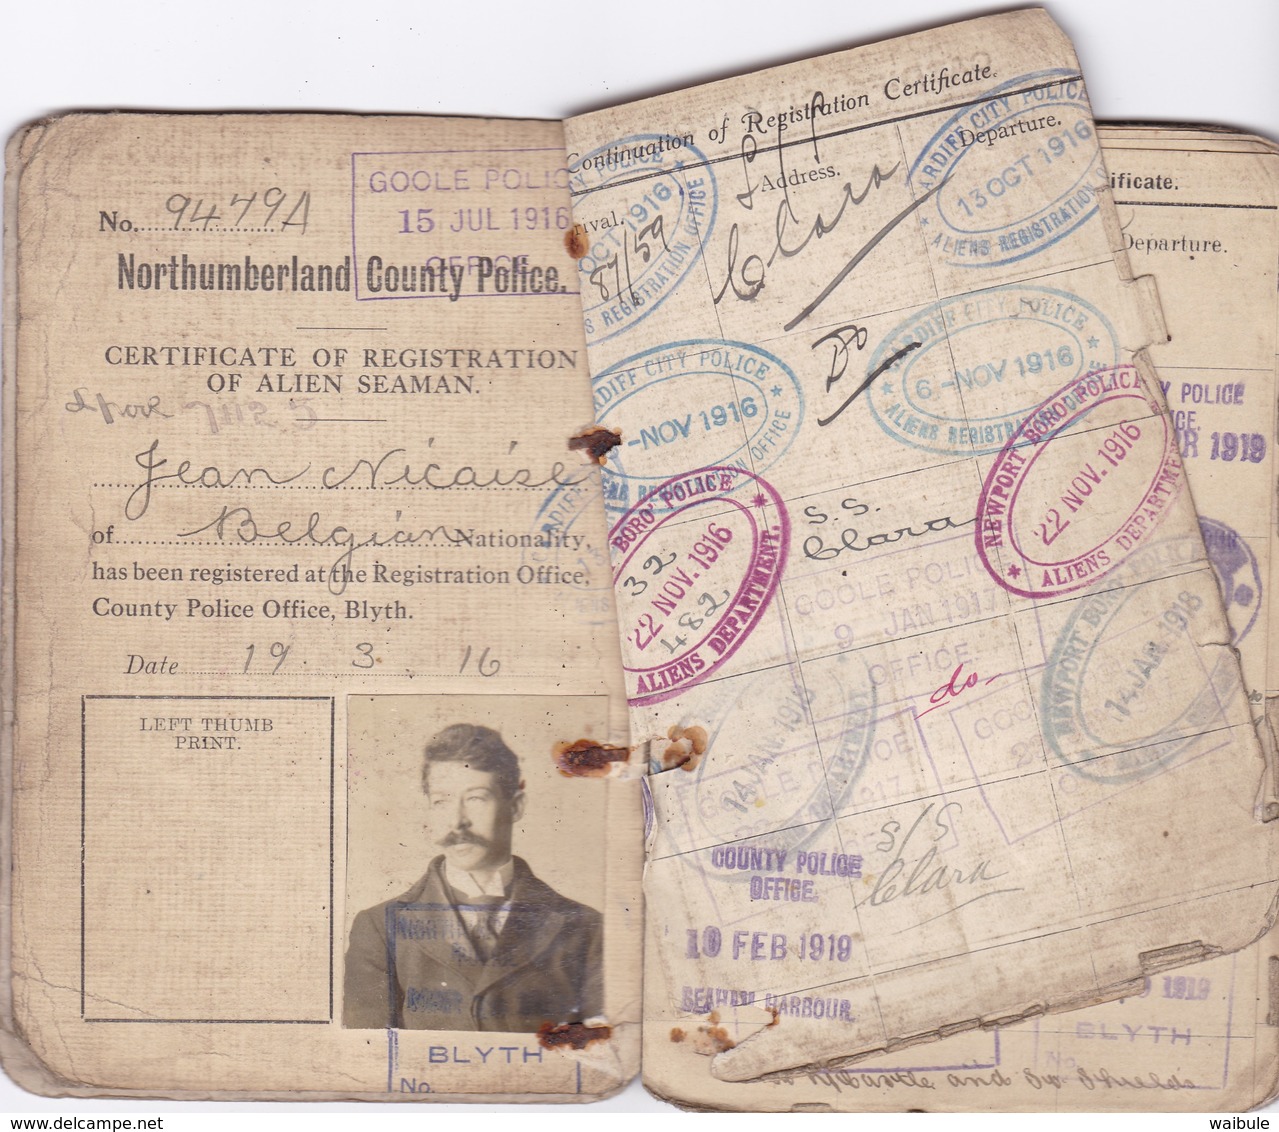 No. 9479A
GOOLE POLIC
15 JUL 1916
OFFICE
Northumberland County Police.
CERTIFICATE OF REGISTRATION
OF ALIEN SEAMAN.
Jean Nicaise
of Belgian Nationality,
has been registered at the Registration Office,
County Police Office, Blyth.
Date 19. 3. 16
LEFT THUMB
PRINT.
BLYTH
No.
Continuation of Registration Certificate.
rival.
Address.
Departure.
OCT 1916
REGISTRATION OFFICE
87/59
Clara
ARDIFF CITY POLICE
13 OCT 1916
ALIENS REGISTRATION
ARDIFF CITY POLICE
-NOV 1916
Do
CARDIFF CITY POLICE
6-NOV 1916
ALIENS REGISTRATION
BORO' POLICE
32
22 NOV. 1916
482
ALIENS DEPARTMENT.
S.S.
Clara
NEWPORT BORO' POLICE
22 NOV. 1916
ALIENS DEPARTMENT
GOOLE POLIC
9 JAN 1917
OFFICE
do
14 JAN. 1918
NEWPORT BORO' POLICE
14 JAN. 1918
S/S
Clara
COUNTY POLICE
OFFICE.
10 FEB 1919
SEAHAM HARBOUR.
ificate.
Departure.
Y POLICE
CE.
R 1919
1919
BLYTH
No.
and So Shields
waibule